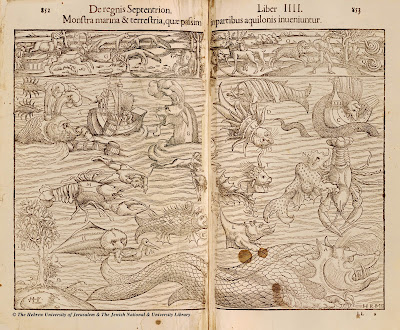 852 De regnis Septentrion.
Monstra marina & terrestria, quæ passim
Liber IIII. 853
in partibus aquilonis inveniuntur.
© The Hebrew University of Jerusalem & The Jewish National & University Library